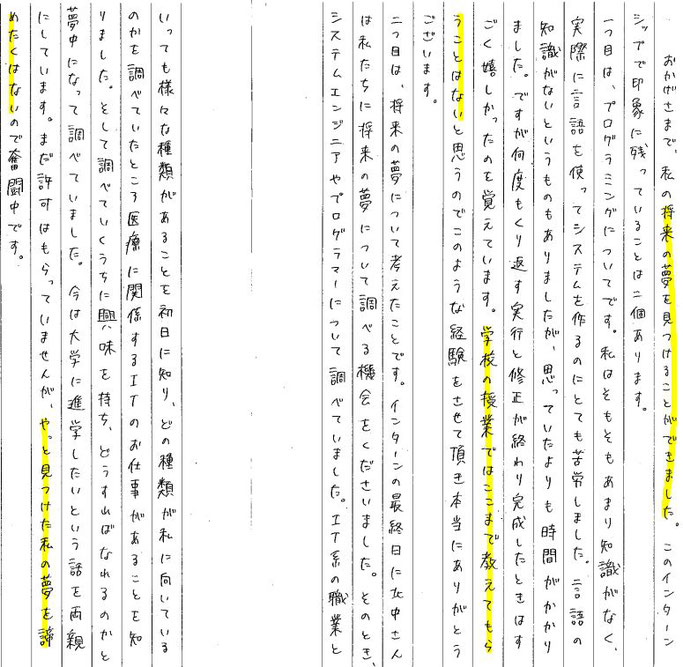 おかげさまで、私の将来の夢を見つけることができました。このインターン
シップで印象に残っていることは二個あります。
一つ目は、プログラミングについてです。私はそもそもあまり知識がなく、
実際に言語を使ってシステムを作るのにとても苦労しました。言語の
知識がないというものもありましたが、思っていたよりも時間がかかり
ました。ですが何度もくり返す実行と修正が終わり完成したときはす
ごく嬉しかったのを覚えています。学校の授業ではここまで教えてもら
うことはないと思うのでこのような経験をさせて頂き本当にありがとう
ございます。
二つ目は、将来の夢について考えたことです。インターンの最終日に女中さん
は私たちに将来の夢について調べる機会をくださいました。そのとき、
システムエンジニアやプログラマーについて調べていました。IT系の職業と
いっても様々な種類があることを初日に知り、どの種類が私に向いている
のかを調べていたところ医療に関係するITのお仕事があることを知
りました。そして調べていくうちに興味を持ち、どうすればなれるのかと
夢中になって調べていました。今は大学に進学したいという話を両親
にしています。まだ許可はもらっていませんが、やっと見つけた私の夢を諦
めたくはないので奮闘中です。